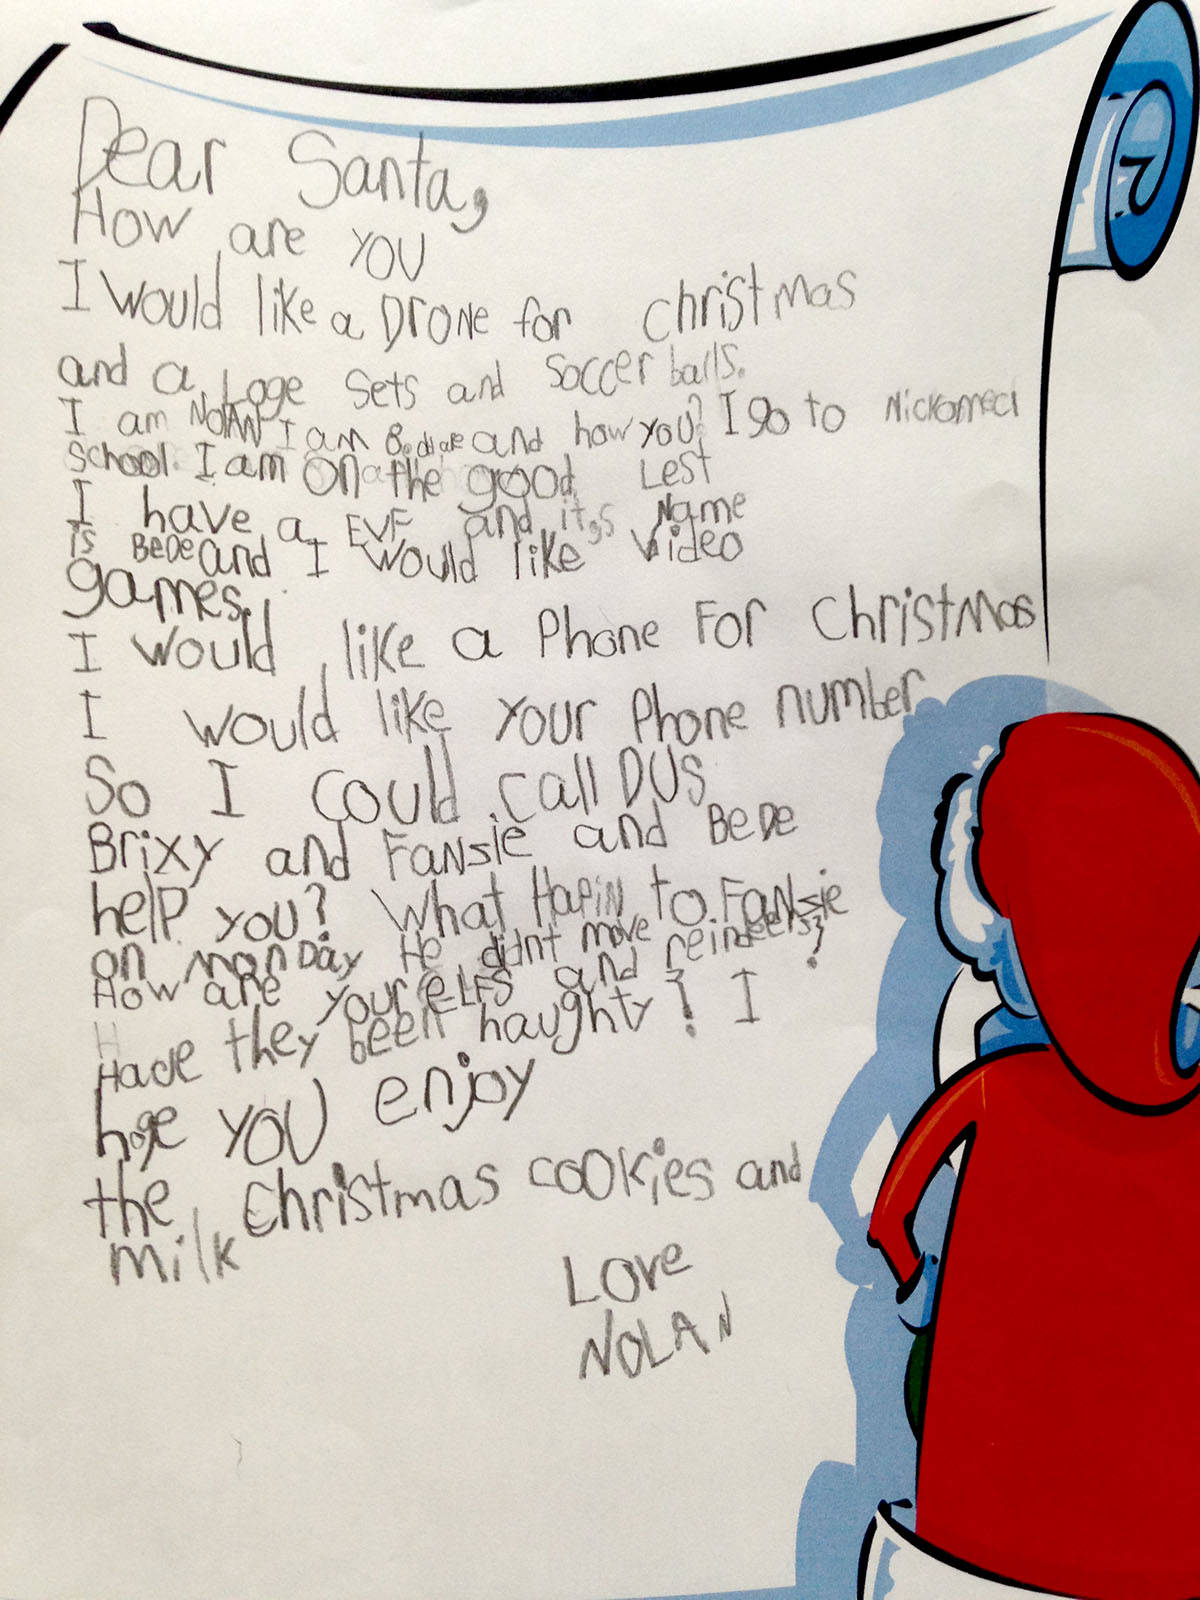 Dear Santa,
How are you
I would like a Drone for christmas
and a Loge sets and soccer balls.
I am NOLAN I am and how you? I go to
school. I am on the good Lest
I have a EVF and it,s Name
is BeDe and I would like video
games.
I would like a Phone For christmas
I would like your Phone number
So I could call DUS
Brixy and FANSie and BeDe
help you? What HaPiN to FaNsie
on monDay He didnt move
How are your eLFS and reindeers?
Have they been naughty? I
hoge you enjoy
the Christmas cookies and
milk
Love
NOLAN